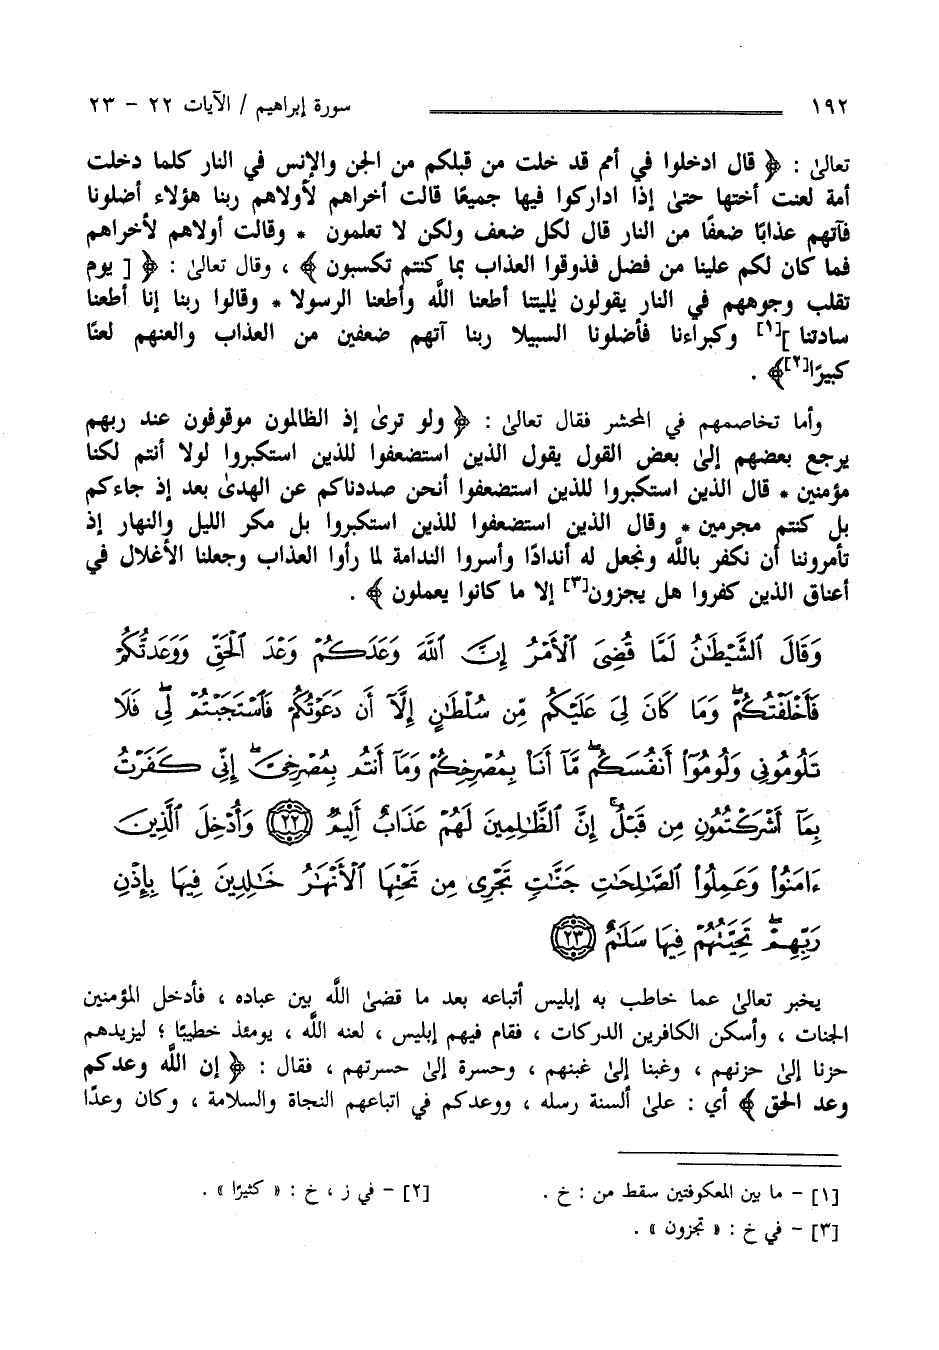 ١٩٢ سورة إبراهيم / الآيات ٢٢ - ٢٣
تعالىٰ : ﴿ قال ادخلوا في أمم قد خلت من قبلكم من الجن والإنس في النار كلما دخلت
أمة لعنت أختها حتىٰ إذا اداركوا فيها جميعًا قالت أخراهم لأولاهم ربنا هؤلاء أضلونا
فآتهم عذابًا ضعفًا من النار قال لكل ضعف ولكن لا تعلمون * وقالت أولاهم لأخراهم
فما كان لكم علينا من فضل فذوقوا العذاب بما كنتم تكسبون ﴾ ، وقال تعالىٰ : ﴿ [ يوم
تقلب وجوههم في النار يقولون يٰليتنا أطعنا اللَّه وأطعنا الرسولا * وقالوا ربنا إنا أطعنا
سادتنا ][١] وكبراءنا فأضلونا السبيلا ربنا آتهم ضعفين من العذاب والعنهم لعنًا
كبيرًا[٢]﴾ .
وأما تخاصمهم في المحشر فقال تعالىٰ : ﴿ ولو ترىٰ إذ الظالمون موقوفون عند ربهم
يرجع بعضهم إلىٰ بعض القول يقول الذين استضعفوا للذين استكبروا لولا أنتم لكنا
مؤمنين * قال الذين استكبروا للذين استضعفوا أنحن صددناكم عن الهدىٰ بعد إذ جاءكم
بل كنتم مجرمين * وقال الذين استضعفوا للذين استكبروا بل مكر الليل والنهار إذ
تأمروننا أن نكفر باللَّه ونجعل له أندادًا وأسروا الندامة لما رأوا العذاب وجعلنا الأغلال في
أعناق الذين كفروا هل يجزون[٣] إلا ما كانوا يعملون ﴾ .
وَقَالَ ٱلشَّيْطَٰنُ لَمَّا قُضِىَ ٱلْأَمْرُ إِنَّ ٱللَّهَ وَعَدَكُمْ وَعْدَ ٱلْحَقِّ وَوَعَدتُّكُمْ
فَأَخْلَفْتُكُمْ ۖ وَمَا كَانَ لِىَ عَلَيْكُم مِّن سُلْطَٰنٍ إِلَّآ أَن دَعَوْتُكُمْ فَٱسْتَجَبْتُمْ لِى ۖ فَلَا
تَلُومُونِى وَلُومُوٓا۟ أَنفُسَكُم ۖ مَّآ أَنَا۠ بِمُصْرِخِكُمْ وَمَآ أَنتُم بِمُصْرِخِىَّ ۖ إِنِّى كَفَرْتُ
بِمَآ أَشْرَكْتُمُونِ مِن قَبْلُ ۗ إِنَّ ٱلظَّٰلِمِينَ لَهُمْ عَذَابٌ أَلِيمٌ ٢٢ وَأُدْخِلَ ٱلَّذِينَ
ءَامَنُوا۟ وَعَمِلُوا۟ ٱلصَّٰلِحَٰتِ جَنَّٰتٍ تَجْرِى مِن تَحْتِهَا ٱلْأَنْهَٰرُ خَٰلِدِينَ فِيهَا بِإِذْنِ
رَبِّهِمْ ۖ تَحِيَّتُهُمْ فِيهَا سَلَٰمٌ ٢٣
يخبر تعالىٰ عما خاطب به إبليس أتباعه بعد ما قضىٰ اللَّه بين عباده ، فأدخل المؤمنين
الجنات ، وأسكن الكافرين الدركات ، فقام فيهم إبليس ، لعنه اللَّه ، يومئذ خطيبًا ؛ ليزيدهم
حزنا إلىٰ حزنهم ، وغبنا إلىٰ غبنهم ، وحسرة إلىٰ حسرتهم ، فقال : ﴿ إن اللَّه وعدكم
وعد الحق ﴾ أي : علىٰ ألسنة رسله ، ووعدكم في اتباعهم النجاة والسلامة ، وكان وعدًا
[١] - ما بين المعكوفتين سقط من : خ . [٢] - في ز ، خ : « كثيرًا » .
[٣] - في خ : « تجزون » .